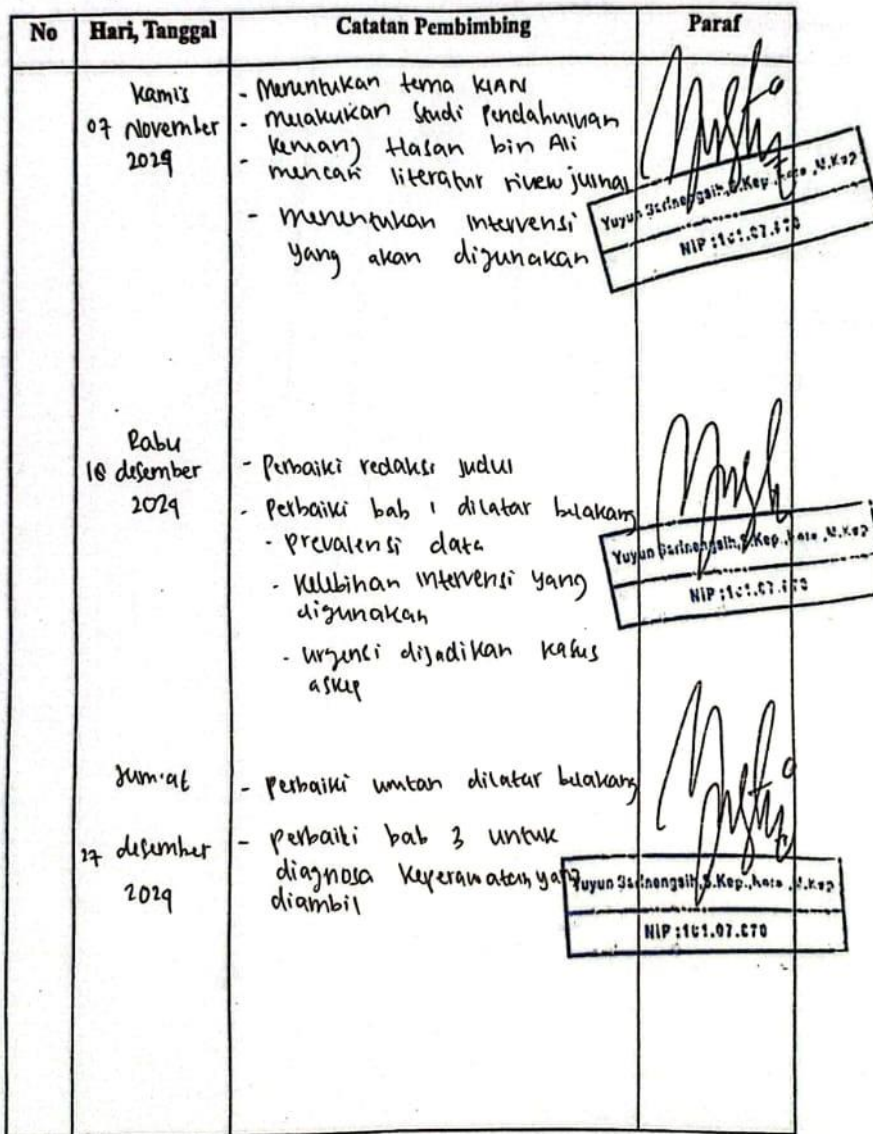 No Hari, Tanggal Catatan Pembimbing Paraf
Kamis
07 November
2024
- Menentukan tema KIAN
- melakukan Studi Pendahuluan
Kemang Hasan bin Ali
- mencari literatur riview jurnal
- menentukan intervensi
yang akan digunakan
Yuyun Sarinengsih,S.Kep.,Ners.,M.Kep
NIP :101.07.070
Rabu
18 desember
2024
- Perbaiki redaksi judul
- Perbaiki bab 1 dilatar belakang
- prevalensi data
- kelebihan intervensi yang
digunakan
- urgensi dijadikan kasus
askep
Yuyun Sarinengsih,S.Kep.,Ners.,M.Kep
NIP :101.07.070
Jum'at
27 desember
2024
- perbaiki urutan dilatar belakang
- perbaiki bab 3 untuk
diagnosa keperawatan yang
diambil
Yuyun Sarinengsih,S.Kep.,Ners.,M.Kep
NIP :101.07.070